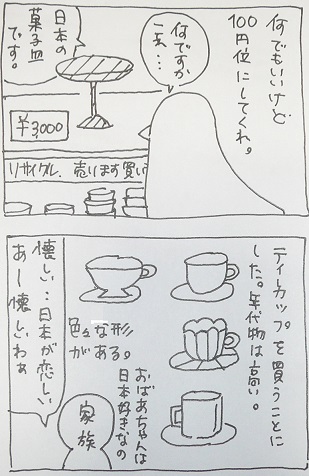 何でもいいけど
100円位にしてくれ。
何ですか
一瓦…
日本の
菓子皿
です。
¥3,000
リサイクル、売ります買い
ティーカップを買うことに
した。年代物は高い。
色々な形
がある。
おばあちゃんは
日本好きなの
家族
懐しい…日本が恋しい
あー懐しいわぁ